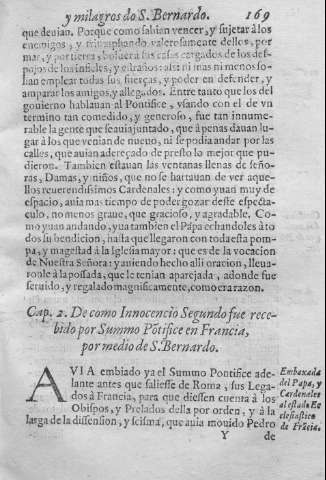 y milagros do S. Bernardo. 169
que deuian. Porque como sabian vencer, y sujetar à los
enemigos, y triumphando valerosamente dellos, por
mar, y por tierra, boluer a sus casas cargados de los des-
pojos de los infieles, y estraños: assi ni mas ni menos so-
lian emplear todas sus fuerças, y poder en defender, y
amparar los amigos, y allegados. Entre tanto que los del
gouierno hablauan al Pontifice, vsando con el de vn
termino tan comedido, y generoso, fue tan innume-
rable la gente que se auia juntado, que à penas dauan lu-
gar à los que venian de nueuo, ni se podia andar por las
calles, que auian adereçado de presto lo mejor que pu-
dieron. Tambien estauan las ventanas llenas de seño-
ras, Damas, y niños, que no se hartauan de ver aque-
llos reuerendissimos Cardenales: y como yuan muy de
espacio, auia mas tiempo de poder gozar deste espectá-
culo, no menos graue, que gracioso, y agradable. Co-
mo yuan andando, yua tambien el Papa echandoles à to
dos su bendicion, hasta que llegaron con toda esta pom-
pa, y magestad à la Iglesia mayor: que es de la vocacion
de Nuestra Señora: y auiendo hecho alli oracion, lleua-
ronle à la possada, que le tenian aparejada, adonde fue
seruido, y regalado magnificamente, como era razon.
Cap. 2. De como Innocencio Segundo fue rece-
bido por Summo Põtifice en Francia,
por medio de S. Bernardo.
AVIA embiado ya el Summo Pontifice ade-
lante antes que saliesse de Roma, sus Lega-
dos à Francia, para que diessen cuenta à los
Obispos, y Prelados della por orden, y à la
larga de la dissension, y scisma, que auia mouido Pedro
Y de
Embaxada
del Papa, y
Cardenales
al estado Ec
clesiastico
de Frãcia.